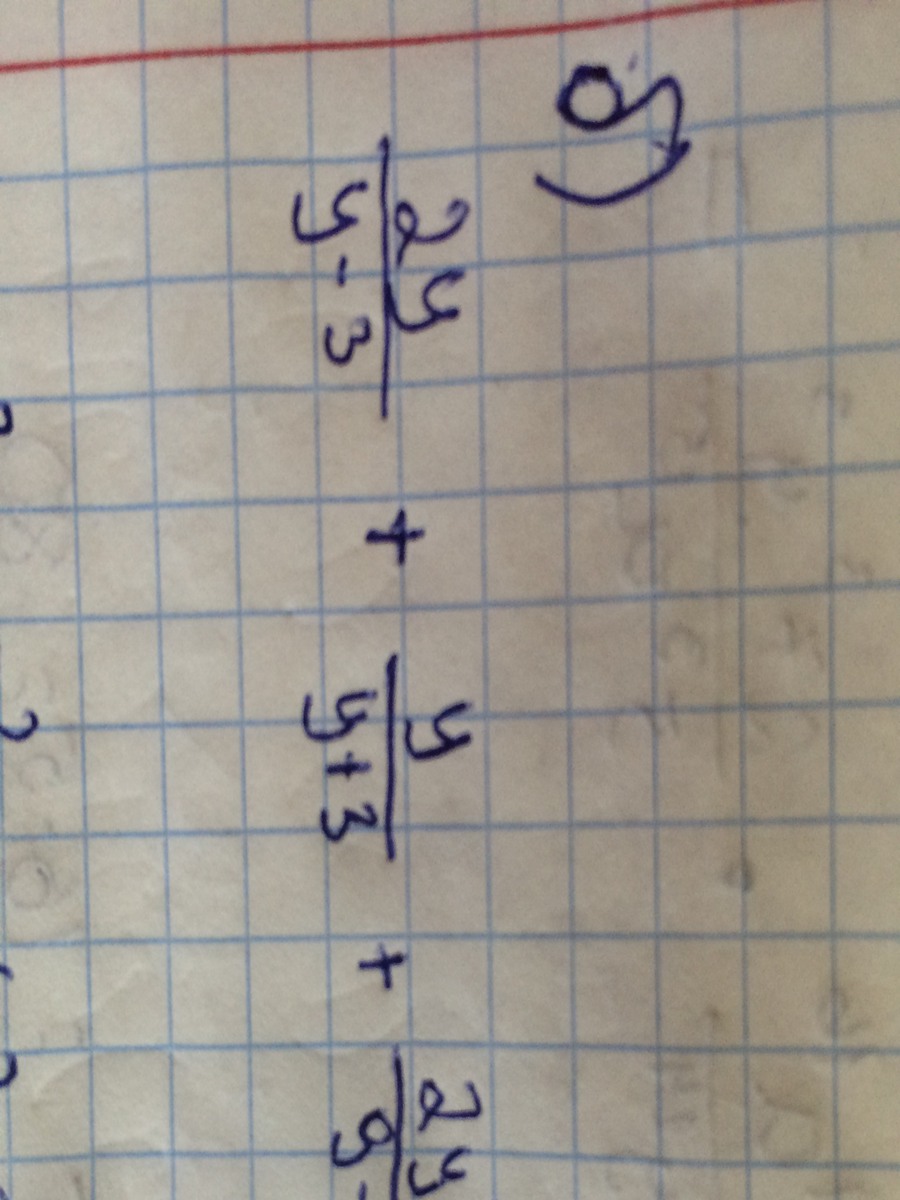 б)
2y/(y - 3) + y/(y + 3) + 2y/(9 -